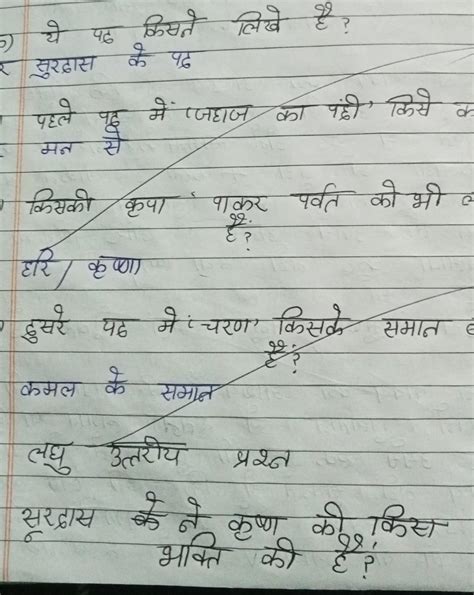 ये पद किसने लिखे है?
सुरदास के पद
पहले पद में 'जहाज का पंछी' किसे
मन से
किसकी कृपा पाकर पर्वत को भी
है?
हरि / कृष्णा
दुसरे पद में 'चरण' किसके समान
है?
कमल के समान
लघु उत्तरीय प्रश्न
सूरदास के ने कृष्ण की किस
भक्ति की है?